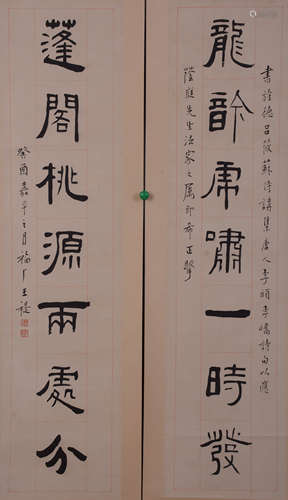 書德呂筱蘇侍講集唐人李頎李嶠詩句以應
龍䪩虎嘯一時發
庭先生法家之屬即希正
蓬閣桃源兩處分
癸酉嘉平之月福厂王禔